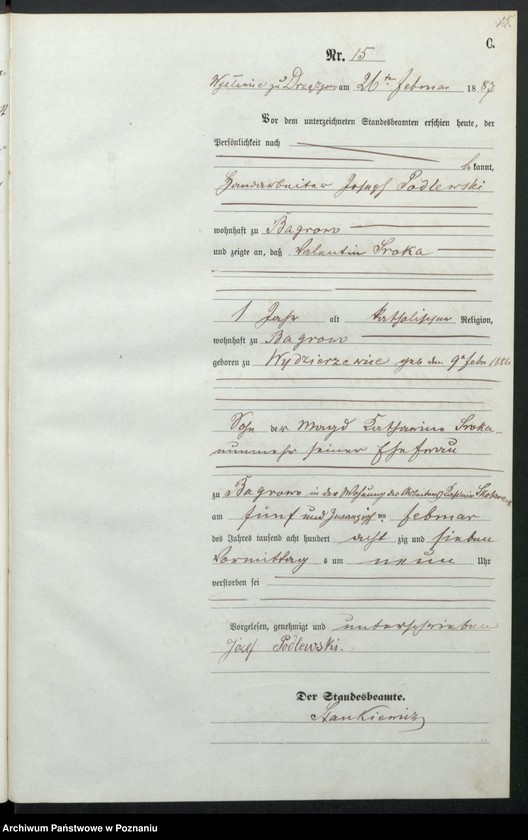 15.
C.
Nr. 15
zu am 26ten Februar 1887
Vor dem unterzeichneten Standesbeamten erschien heute, der
Persönlichkeit nach
bekannt,
Joseph Podlewski
wohnhaft zu Bagrowo
und zeigte an, daß Valentin Sroka
1 Jahr alt katholischer Religion,
wohnhaft zu Bagrowo
geboren zu Wydzierzewice geb. den 9n Febr. 1886
Sohn der Magd Katharina Sroka
nunmehr seiner Ehefrau
zu Bagrowo in der Wohnung des Arbeiters
am fünf und zwanzigsten Februar
des Jahres tausend acht hundert achtzig und sieben
Vormittags um neun Uhr
verstorben sei
Vorgelesen, genehmigt und unterschrieben
Józef Podlewski.
Der Standesbeamte.
Stankiewicz
Archiwum Państwowe w Poznaniu